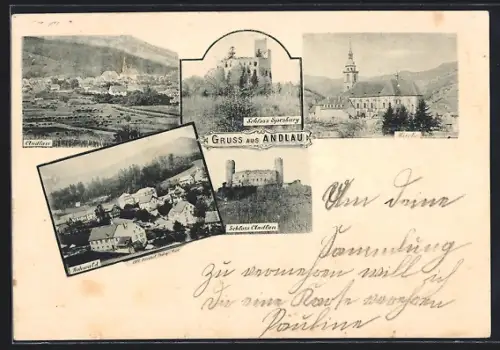 Andlau
Schloss Spesburg
Kirche
GRUSS aus ANDLAU
Hohwald
Schloss Andlau
Um Deine
Sammlung
zu vermehren will ich
Dir eine Karte verehren
Pauline